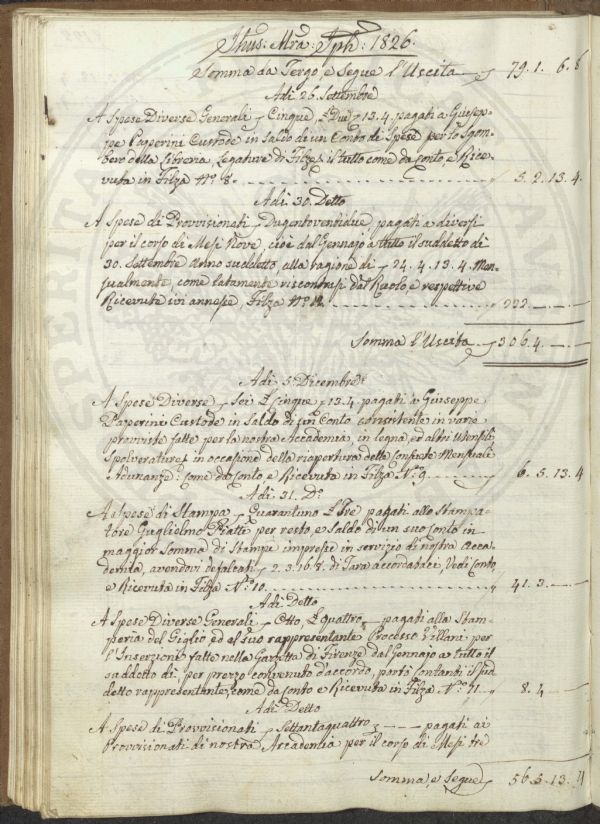 Jhus: Mra: Jph: 1826.
Somma da Tergo, e Segue l'Uscita 79. 1. 6. 8
Adi 26. Settembre
A Spese Diverse Generali Cinque, 13. 4. pagati a Giusep-
pe Paperini Custode in Saldo di un Conto di Spese per lo Sgom-
bero della Libreria, Legature di Filze, il tutto come da Conto, e Rice-
vuta in Filza Nº 8. 5. 2. 13. 4.
Adi 30. Detto
A Spese di Provvisionati Dugentoventidue pagati a diversi
per il corso di Mesi Nove, cioè dal Gennajo a tutto il suddetto dì
30. Settembre Anno suddetto, alla ragione di 24. 4. 13. 4. Men-
sualmente, come latamente riscontrasi dal Ruolo e respettive
Ricevute ivi annesse, Filza Nº 222.
Somma l'Uscita 306. 4.
Adi 5. Dicembre
A Spese Diverse Sei L cinque 13. 4. pagati a Giuseppe
Paperini Custode in Saldo di un Conto consistente in varie
provviste fatte per la nostra Accademia, in legna, ed altri Utensili
Spolverature, in occasione della riapertura delle Consuete Mensuali
Adunanze: come da Conto, e Ricevuta in Filza Nº 9 6. 5. 13. 4
Adi 31. Dº
A Spese di Stampa Quarantuno L Tre pagati allo Stampa-
tore Guglielmo Piatti per resto, e Saldo di un suo Conto in
maggior Somma di Stampe impresse in servizio di nostra Acca-
demia, avendovi defalcati 2. 3. 16. 8. di Tara accordataci, Vedi Conto,
e Ricevuta in Filza Nº 10. 41. 3.
Adi Detto
A Spese Diverse Generali Otto, L quattro, pagati alla Stam-
peria del Giglio ed al suo rappresentante Processo Villani per
l'Inserzioni fatte nella Gazzetta di Firenze dal Gennajo a tutto il
suddetto dì, per prezzo convenuto d'accordo, portò Contanti il sud-
detto rappresentante, come da Conto e Ricevuta in Filza Nº 11. 8. 4
Adi Detto
A Spese di Provvisionati Settantaquattro pagati ai
Provvisionati di nostra Accademia per il corso di Mesi tre
Somma, e Segue 56. 5. 13. 4